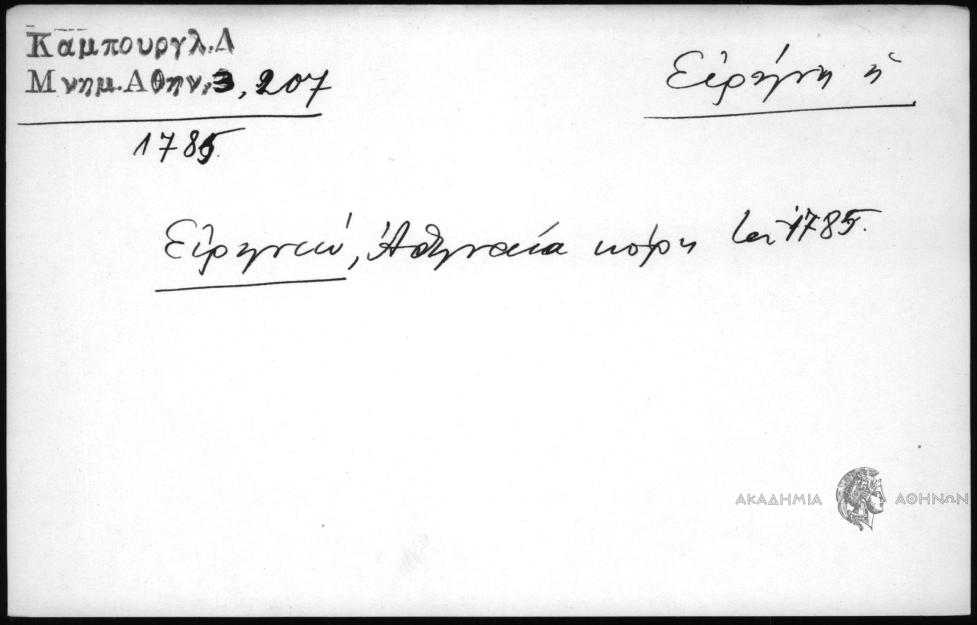 Καμπουργλ.Α
Μνημ.Αθην, 3, 207
Εἰρήνη ἡ
1785.
Εἰρηνιώ, Ἀθηναία κόρη τοῦ 1785.
ΑΚΑΔΗΜΙΑ ΑΘΗΝΩΝ